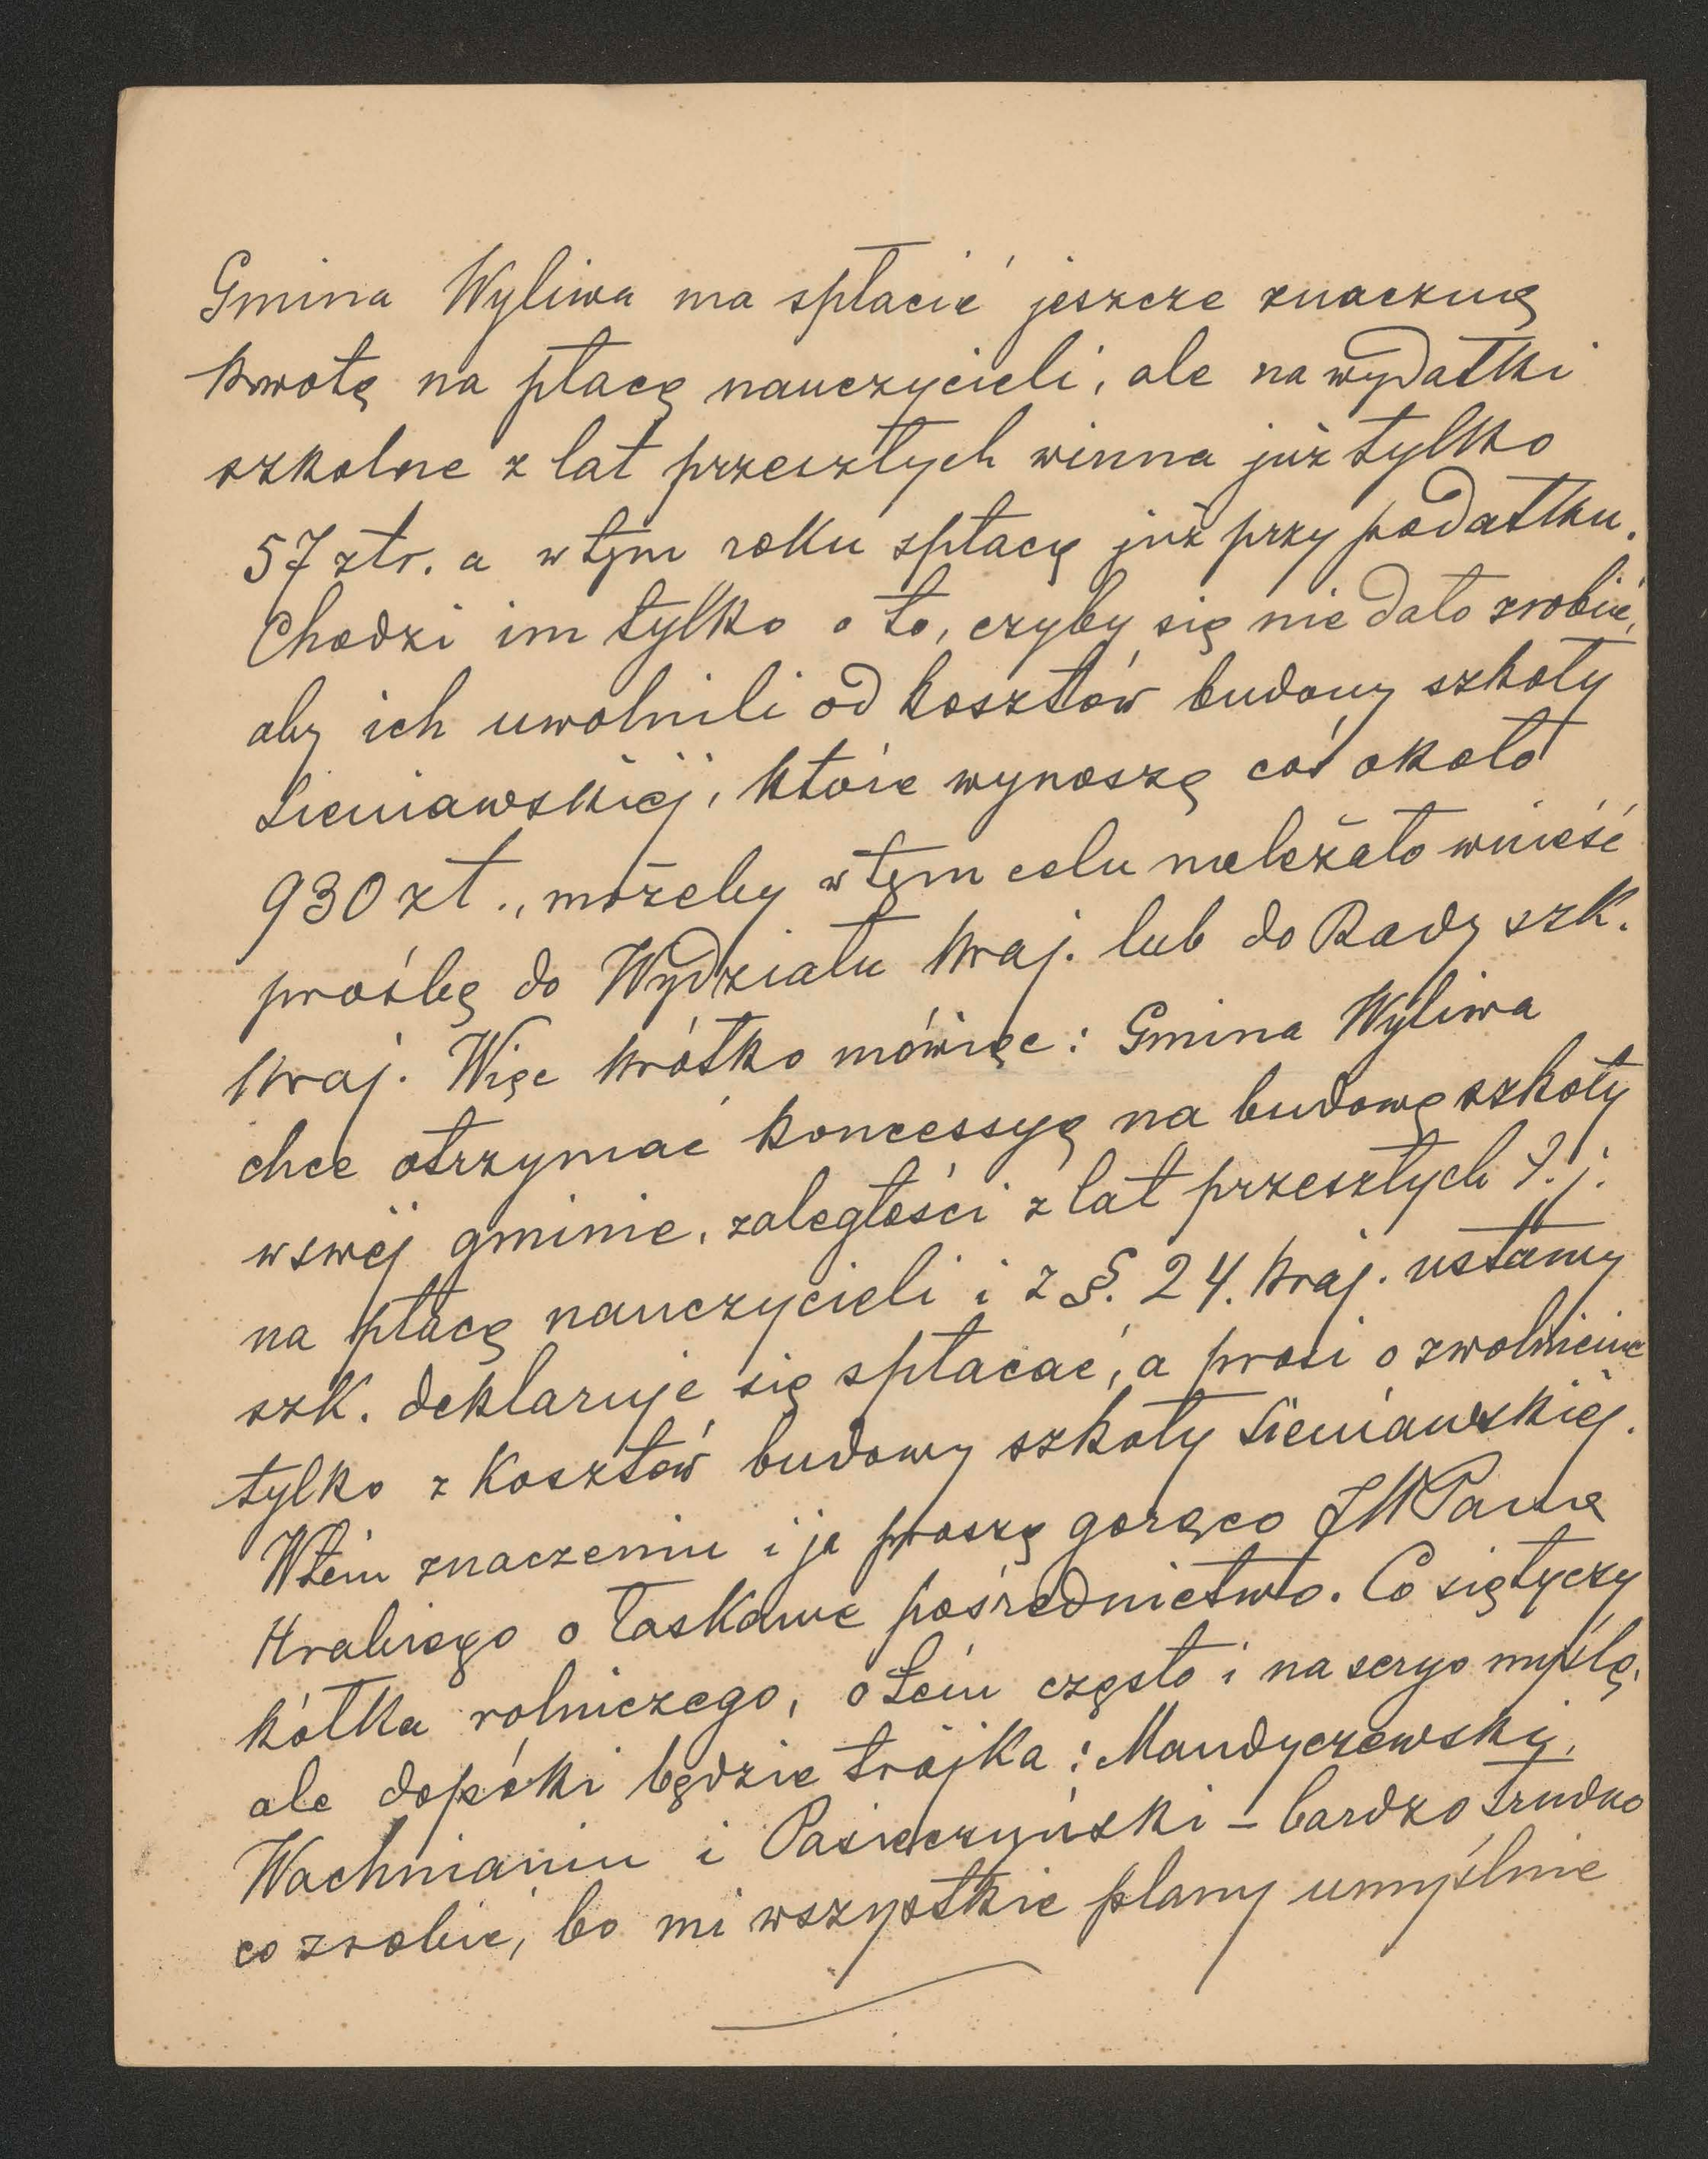 Gmina Wyliwa ma spłacić jeszcze znaczną
kwotę na płacę nauczycieli, ale na wydatki
szkolne z lat przeszłych winna już tylko
57 złr. a w tym roku spłacą już przy podatku.
Chodzi im tylko o to, czyby się nie dało zrobić,
aby ich uwolnili od kosztów budowy szkoły
Sieniawskiéj, które wynoszą coś około
930 zł., możeby w tym celu należało wnieść
prośbę do Wydziału kraj. lub do Rady szk.
kraj. Więc krótko mówiąc: Gmina Wyliwa
chce otrzymać koncessyę na budowę szkoły
w swéj gminie, zaległości z lat przeszłych t. j.
na płacę nauczycieli i z §. 24. kraj. ustawy
szk. deklaruje się spłacać, a prosi o zwolnienie
tylko z kosztów budowy szkoły Sieniawskiéj.
W tem znaczeniu i ja proszę gorąco JWPana
Hrabiego o łaskawe pośrednictwo. Co się tyczy
kółka rolniczego, o tem często i na seryo myślę,
ale dopóki będzie trójka: Mandyczewski,
Wachnianin i Pasieczyński – bardzo trudno
co zrobić, bo mi wszystkie plany umyślnie